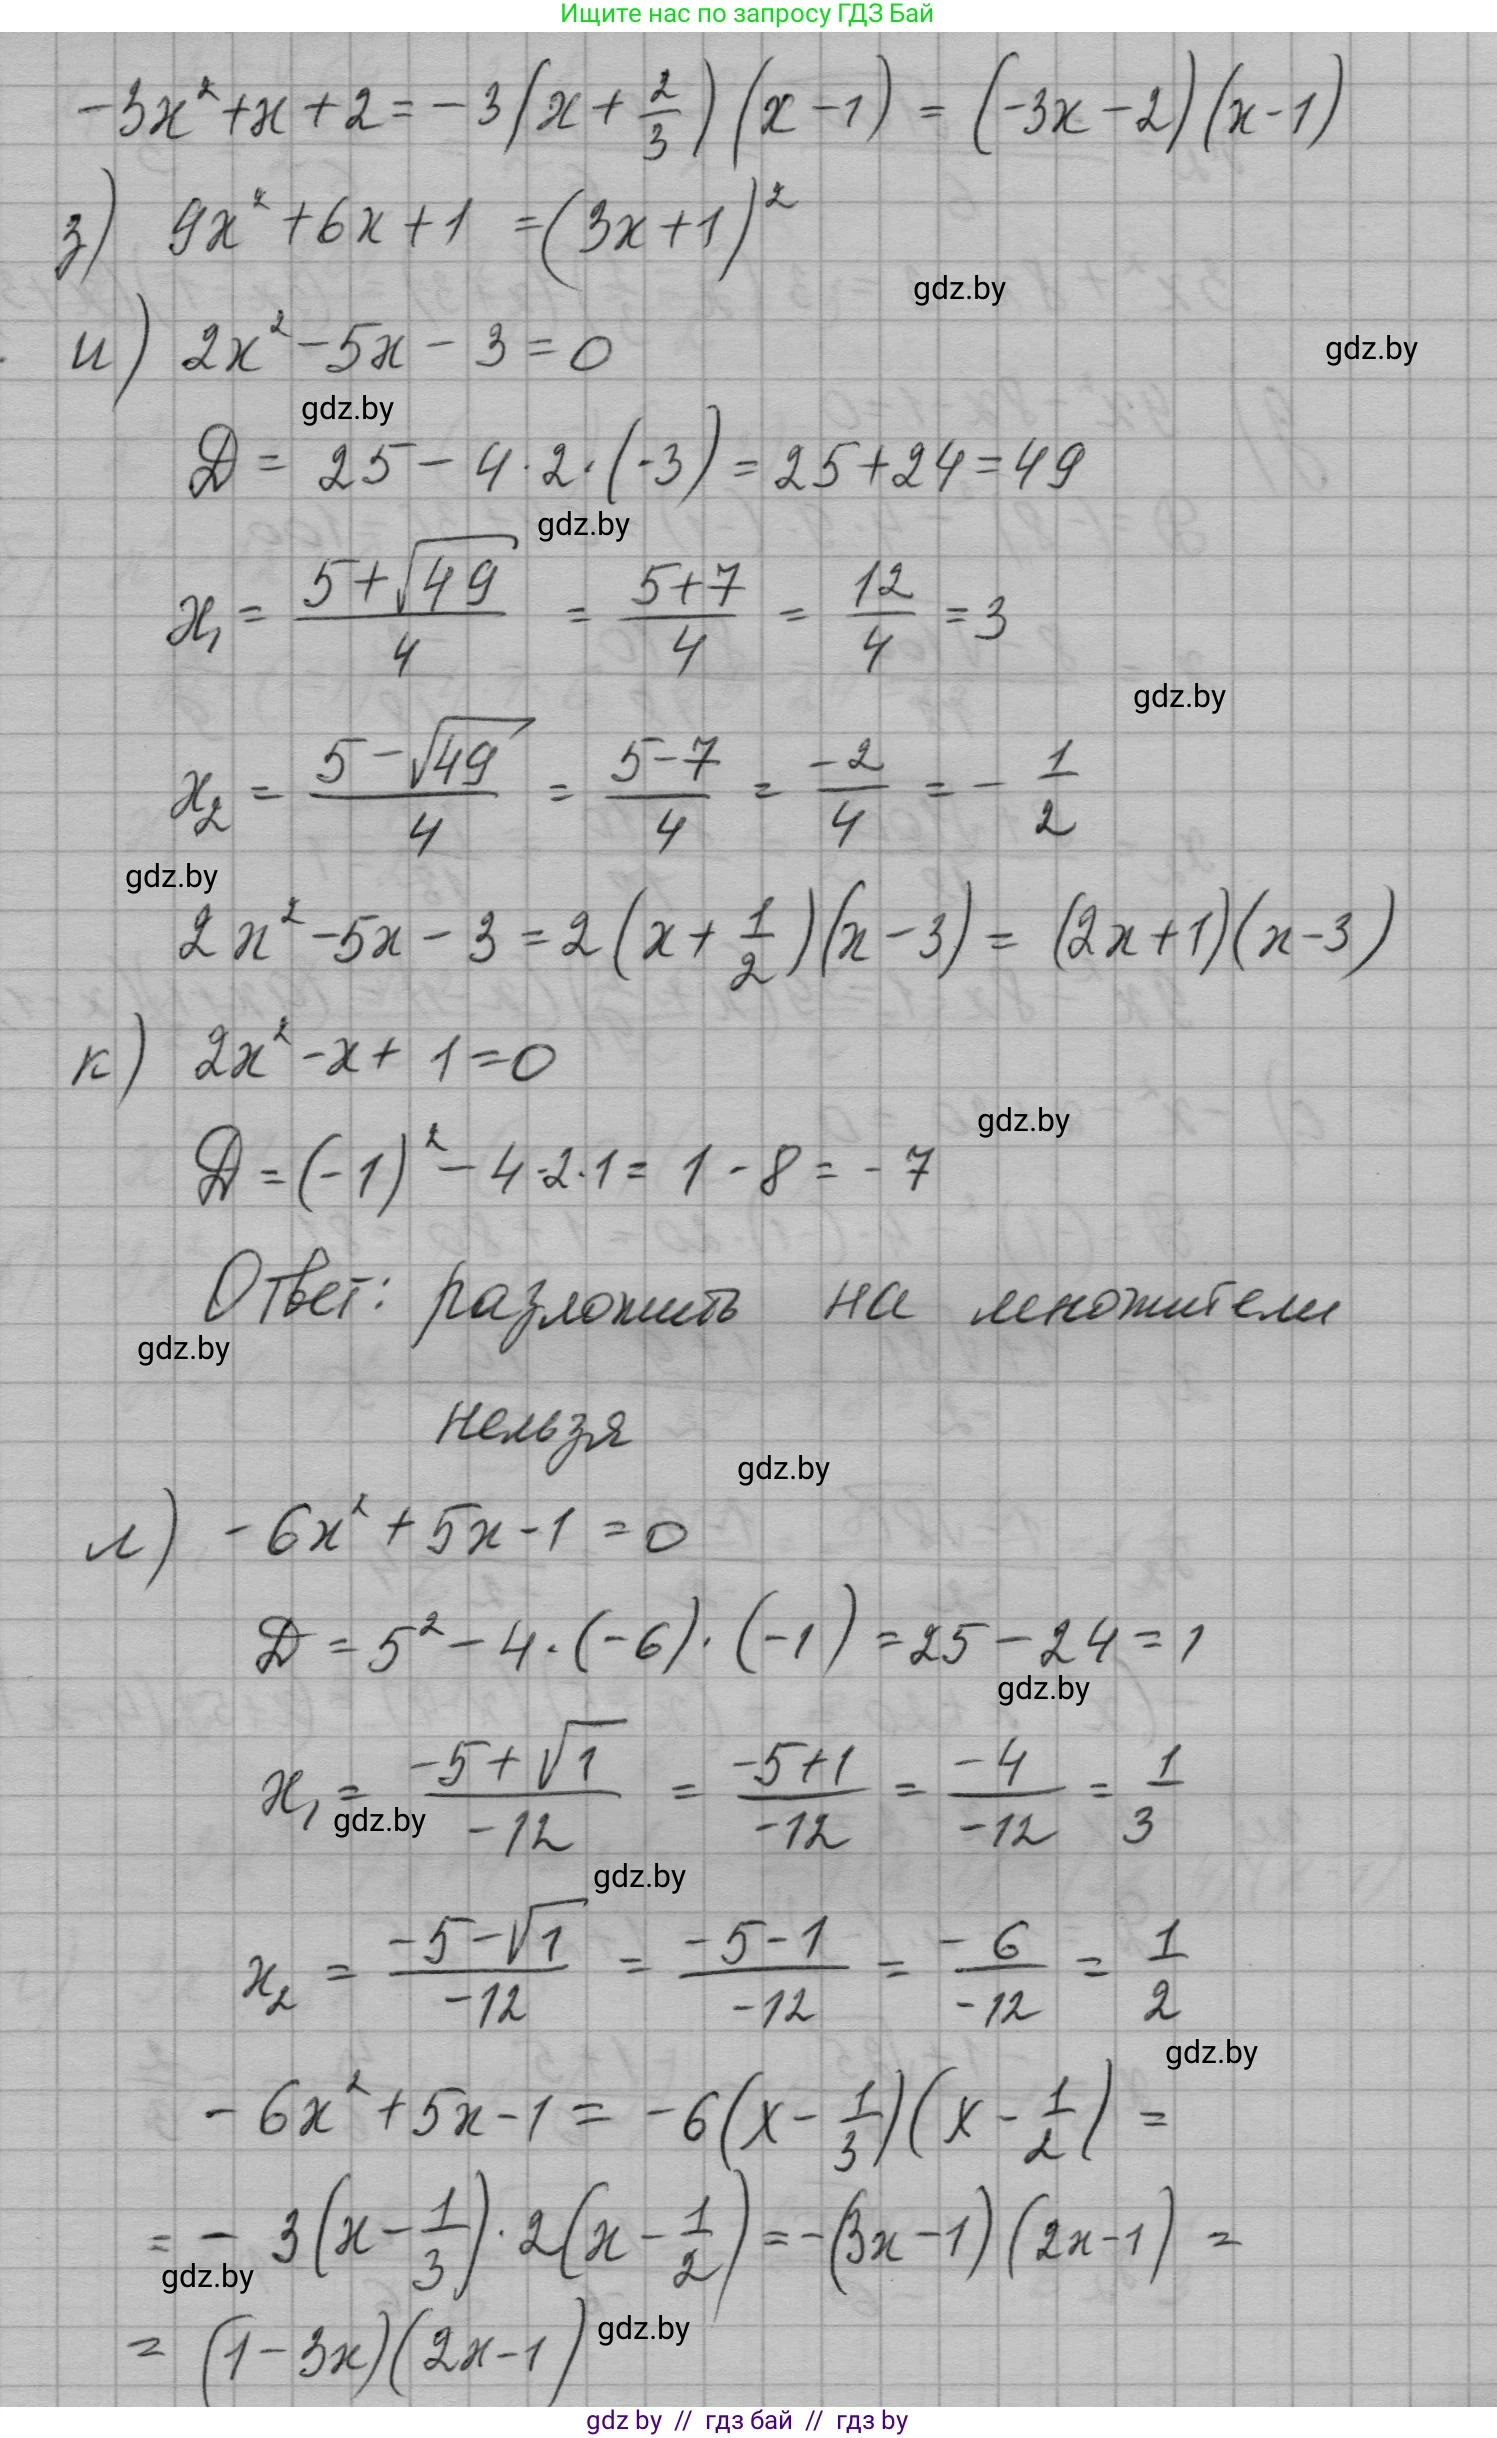 Ищите нас по запросу ГДЗ Бай
-3x² + x + 2 = -3(x + 2/3)(x - 1) = (-3x - 2)(x - 1)
з) 9x² + 6x + 1 = (3x + 1)²
gdz.by
и) 2x² - 5x - 3 = 0
gdz.by
gdz.by
D = 25 - 4·2·(-3) = 25 + 24 = 49
gdz.by
x₁ = (5 + √49)/4 = (5+7)/4 = 12/4 = 3
gdz.by
x₂ = (5 - √49)/4 = (5-7)/4 = -2/4 = -1/2
gdz.by
2x² - 5x - 3 = 2(x + 1/2)(x - 3) = (2x + 1)(x - 3)
к) 2x² - x + 1 = 0
gdz.by
D = (-1)² - 4·2·1 = 1 - 8 = -7
Ответ: разложить на множители
gdz.by
нельзя
gdz.by
л) -6x² + 5x - 1 = 0
D = 5² - 4·(-6)·(-1) = 25 - 24 = 1
gdz.by
x₁ = (-5 + √1)/-12 = (-5+1)/-12 = -4/-12 = 1/3
gdz.by
gdz.by
x₂ = (-5 - √1)/-12 = (-5-1)/-12 = -6/-12 = 1/2
gdz.by
-6x² + 5x - 1 = -6(x - 1/3)(x - 1/2) =
= -3(x - 1/3)·2(x - 1/2) = -(3x - 1)(2x - 1) =
gdz.by
gdz.by
= (1 - 3x)(2x - 1)
gdz by // гдз бай // гдз by